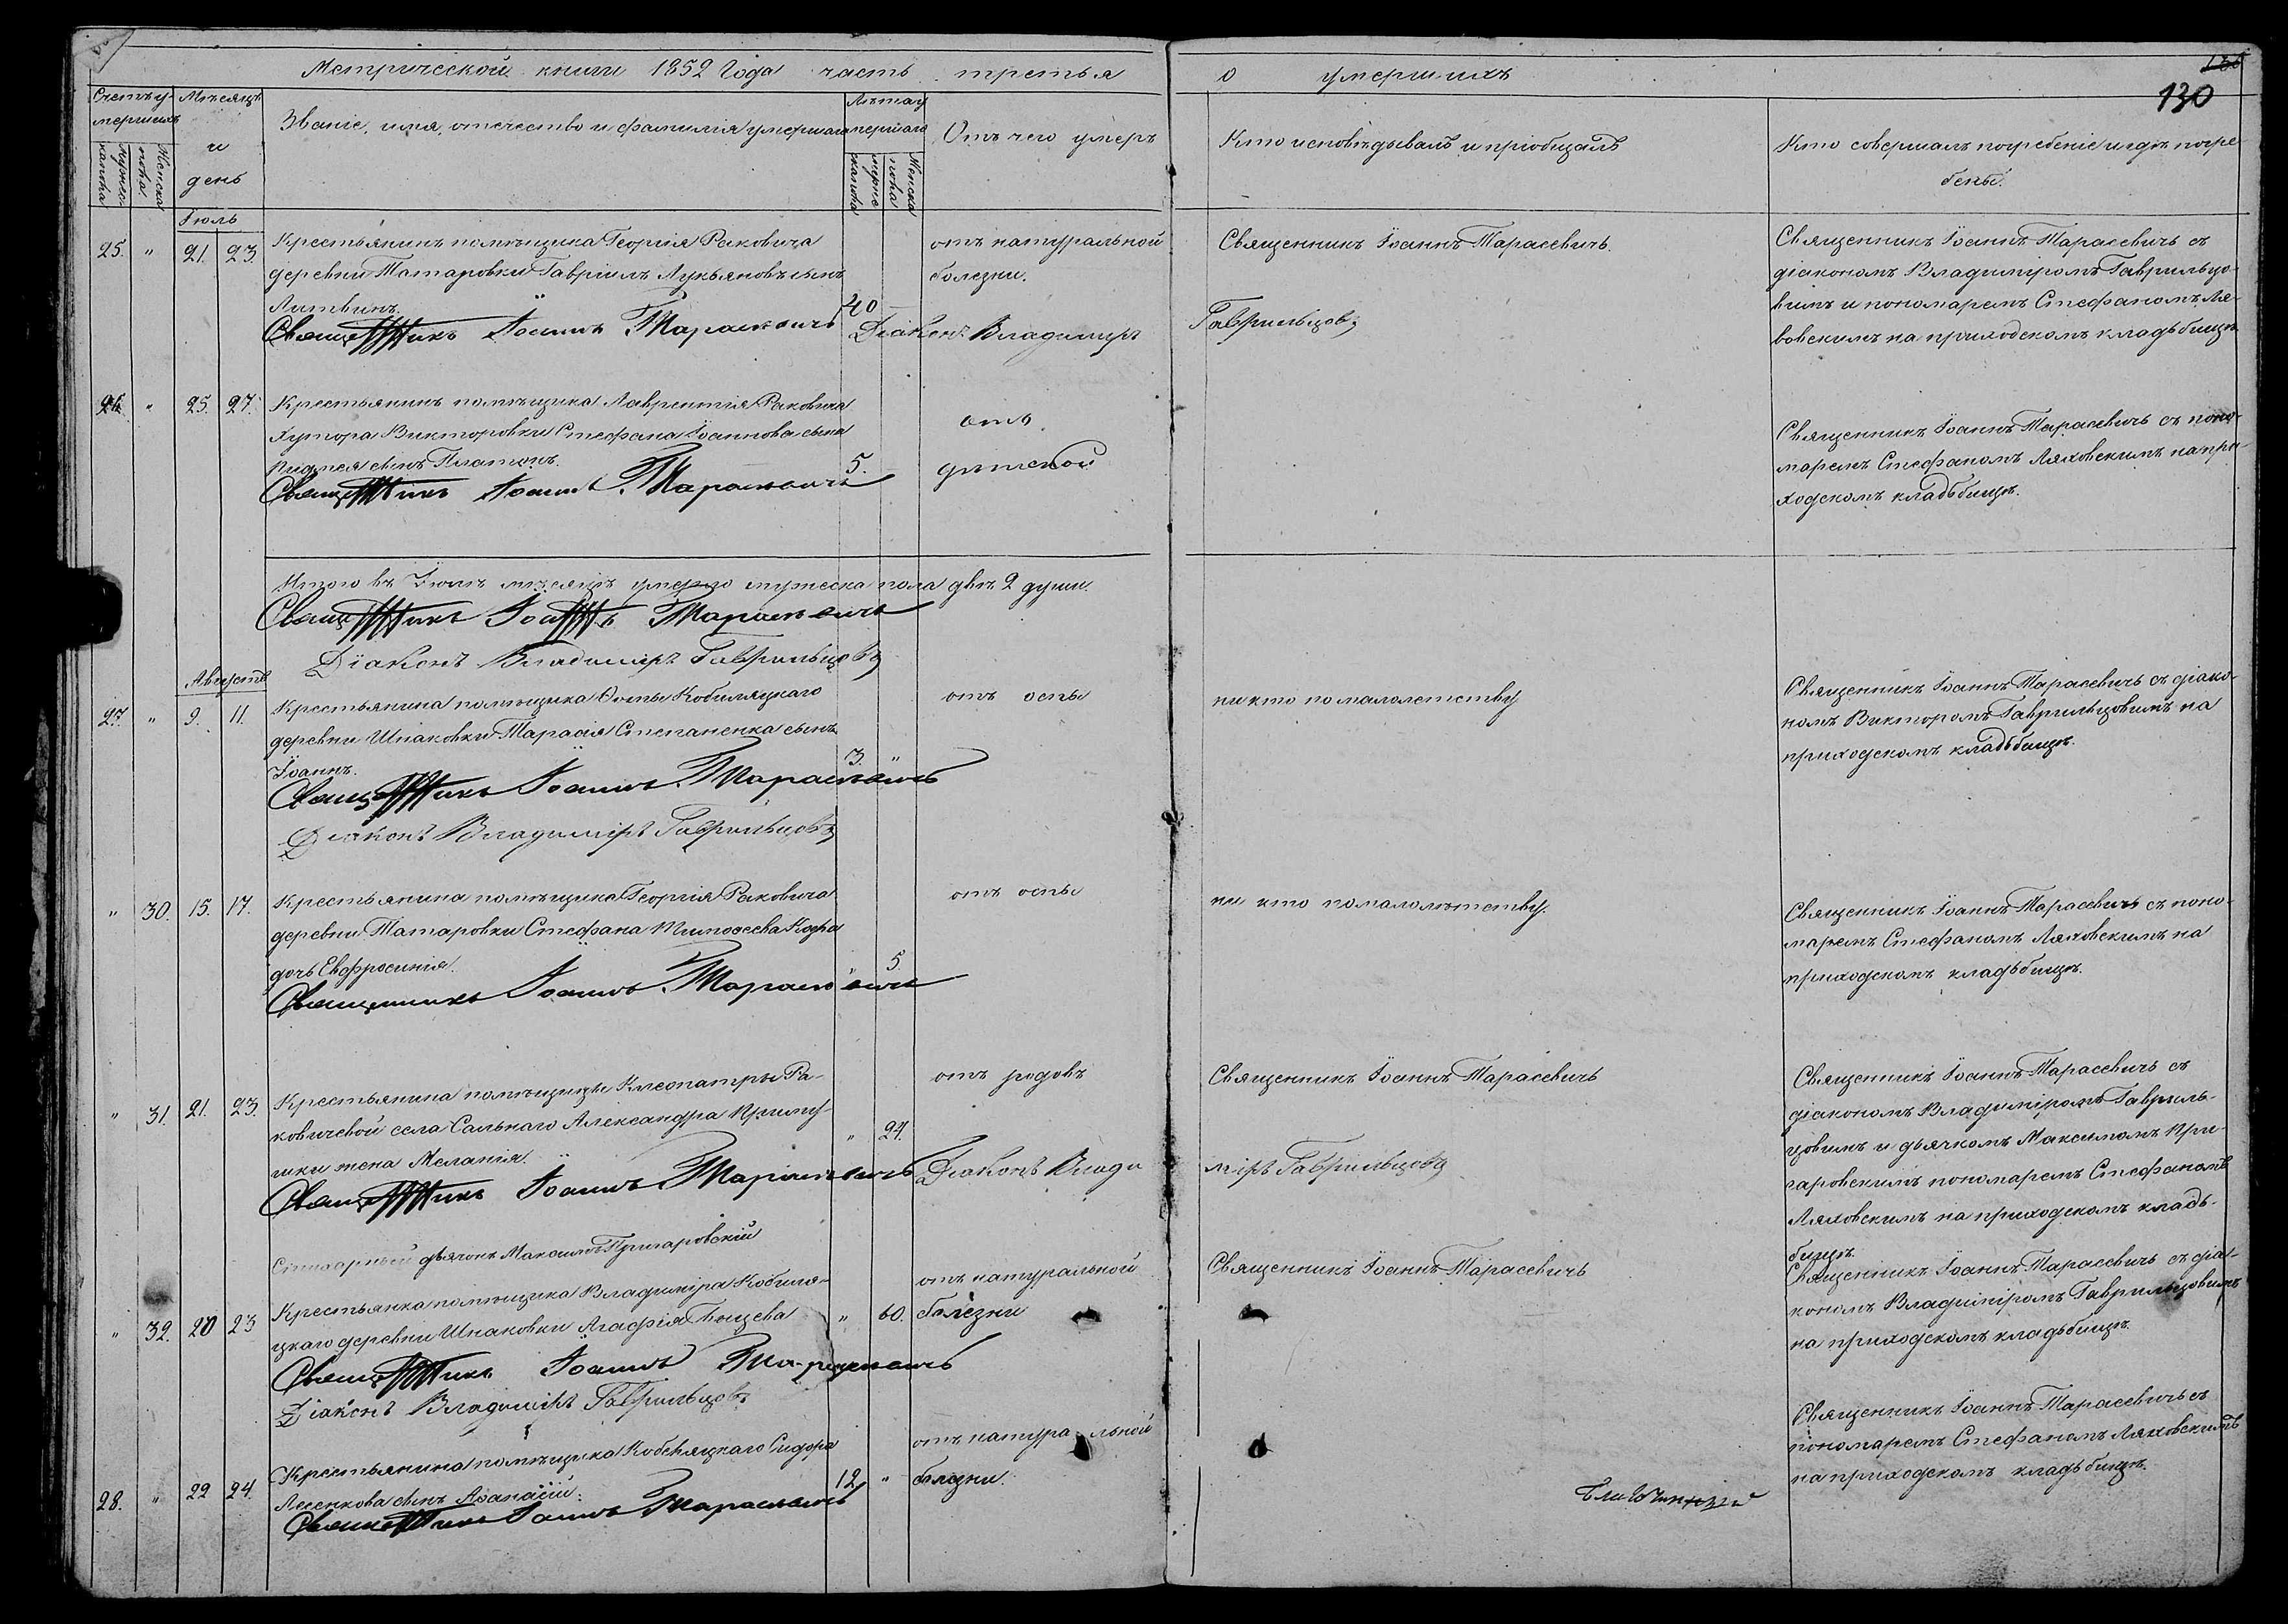 Метрической книги 1852 года часть третья о умершихъ
130
Счетъ умершихъ
Мужеска пола
Женска пола
Мѣсяцъ и день
Званіе, имя, отчество и фамилія умершаго
Лѣта умершаго
Мужескапола
Женска пола
Отъ чего умеръ
Кто исповѣдывалъ и пріобщалъ
Кто совершалъ погребеніе и гдѣ погре
бены.
Іюль
25. " 21. 23
Крестьянинъ помѣщика Георгія Раковича
деревни Татаровки Гавріилъ Лукьяновъ сынъ
Литвинъ.
40
отъ натуральной
болезни.
Священникъ Іоаннъ Тарасевичъ.
Священникъ Іоаннъ Тарасевичъ съ
діакономъ Владиміромъ Гаврильцо-
вимъ и пономаремъ Стефаномъ Ля-
ховскимъ на приходскомъ кладьбищѣ
Священникъ Іоаннъ Тарасевичъ
Діаконъ Владимиръ Гаврильцовъ
26. " 25. 27.
Крестьянинъ помѣщика Лаврентія Раковича
хутора Викторовки Стефана Іоаннова сына
сынъ Платонъ.
5.
отъ
дѣтской
Священникъ Іоаннъ Тарасевичъ съ поно-
маремъ Стефаномъ Ляховскимъ на при-
ходскомъ кладьбищѣ.
Священникъ Іоаннъ Тарасевичъ
Итого въ Іюлѣ мѣсяцѣ умерло мужеска пола двѣ 2 души.
Священникъ Іоаннъ Тарасевичъ
Діаконъ Владиміръ Гаврильцовъ
Августъ
27. " 9. 11.
Крестьянина помѣщика Ѳомы Кобиляцкаго
деревни Шпаковки Тарасія Степаненка сынъ
Іоаннъ.
3. "
отъ оспы
никто по малолетству
Священникъ Іоаннъ Тарасевичъ съ діако-
номъ Викторомъ Гаврильцовимъ на
приходскомъ кладьбищѣ.
Священникъ Іоаннъ Тарасевичъ
Діаконъ Владиміръ Гаврильцовъ
" 30. 15. 17.
Крестьянина помѣщика Георгія Раковича
деревни Татаровки Стефана Тимоѳеева
дочь Евфросинія.
" 5
отъ оспы
ни кто по малолѣтству.
Священникъ Іоаннъ Тарасевичъ съ поно-
маремъ Стефаномъ Ляховскимъ на
приходскомъ кладьбищѣ.
Священникъ Іоаннъ Тарасевичъ
" 31. 21. 23.
Крестьянина помѣщицы Клеопатры Ра-
ковичевой села Сальнаго Александра Приму-
шки жена Меланія.
" 24.
отъ родовъ
Священникъ Іоаннъ Тарасевичъ
Священникъ Іоаннъ Тарасевичъ съ
діакономъ Владиміромъ Гавриль-
цовимъ и дьячкомъ Максимомъ При-
гаровскимъ пономаремъ Стефаномъ
Ляховскимъ на приходскомъ кладь-
бищѣ.
Священникъ Іоаннъ Тарасевичъ
Діаконъ Владиміръ Гаврильцовъ
дьячокъ Максимъ Пригаровскій
" 32. 20 23
Крестьянка помѣщика Владиміра Кобиля-
цкаго деревни Шпаковки Агафія
" 60.
отъ натуральной
болезни
Священникъ Іоаннъ Тарасевичъ
Священникъ Іоаннъ Тарасевичъ съ діа-
кономъ Владиміромъ Гаврильцовимъ
на приходскомъ кладьбищѣ.
Священникъ Іоаннъ Тарасевичъ
Діаконъ Владиміръ Гаврильцовъ
28. " 22 24.
Крестьянина помѣщика Кобеляцкаго Сидора
Лесенкова сынъ Аѳанасій.
12. "
отъ натуральной
болезни.
Священникъ Іоаннъ Тарасевичъ съ
пономаремъ Стефаномъ Ляховскимъ
на приходскомъ кладьбищѣ.
Священникъ Іоаннъ Тарасевичъ